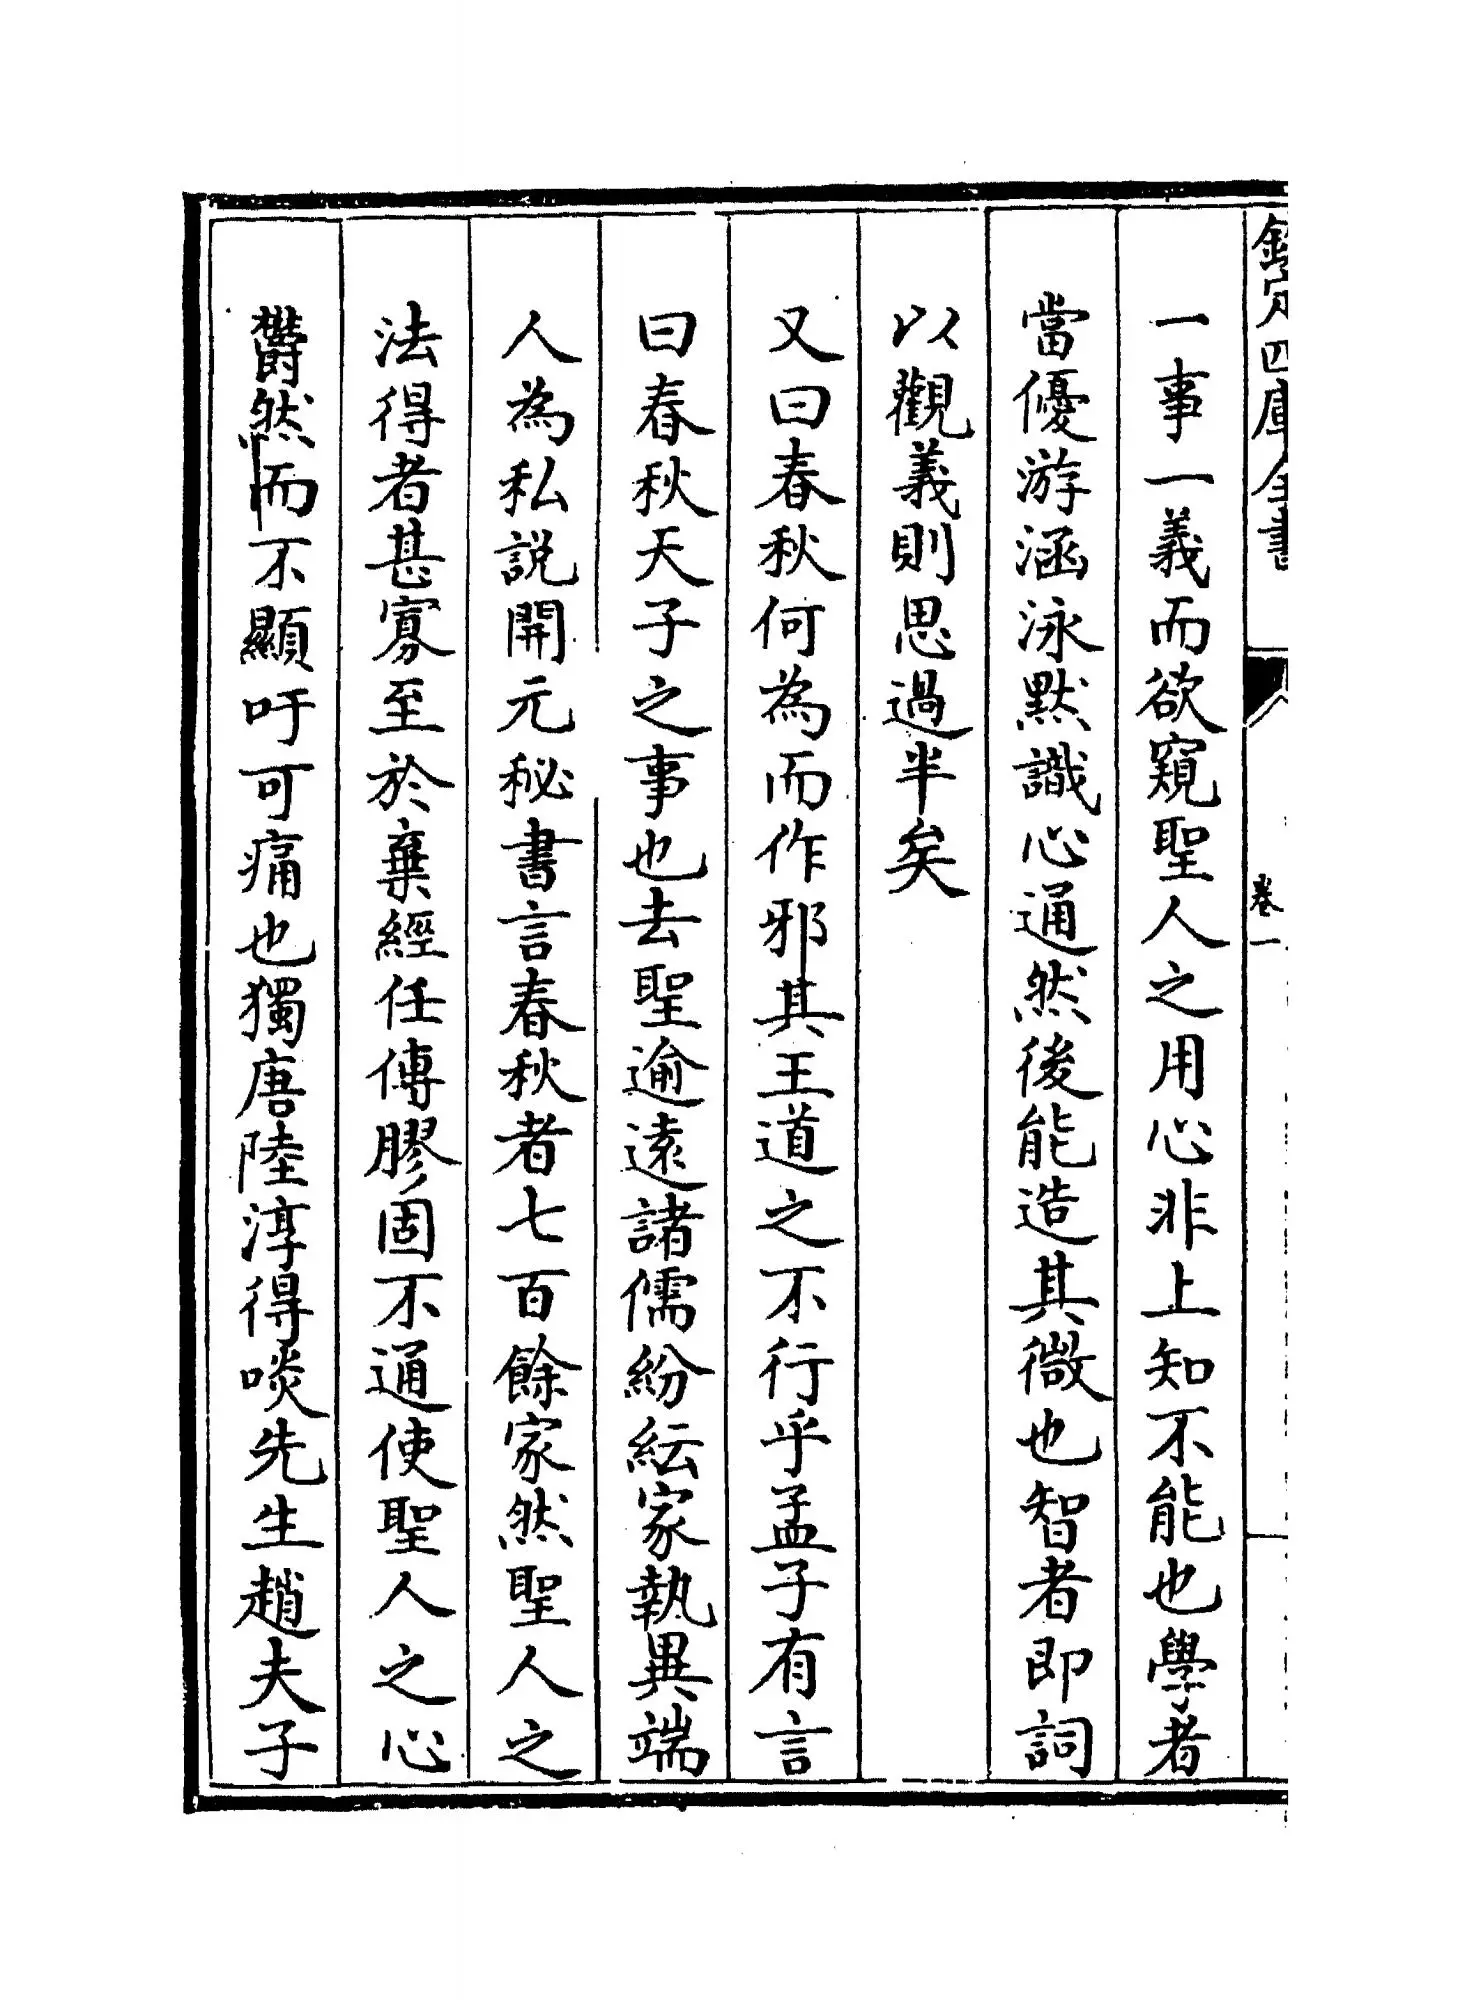 欽定四庫全書
卷一
一事一義而欲窺聖人之用心非上知不能也學者
當優游涵泳默識心通然後能造其微也智者即詞
以觀義則思過半矣
又曰春秋何為而作邪其王道之不行乎孟子有言
曰春秋天子之事也去聖逾遠諸儒紛紜家執異端
人為私説開元秘書言春秋者七百餘家然聖人之
法得者甚寡至於棄經任傳膠固不通使聖人之心
鬱然而不顯吁可痛也獨唐陸淳得啖先生趙夫子